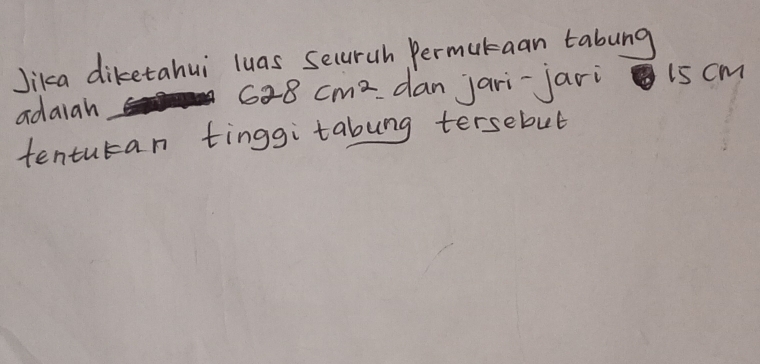 Jika diketahui luas seluruh Permukaan tabung
adalah 628 cm². dan jari-jari 15 cm
tentukan tinggi tabung tersebut